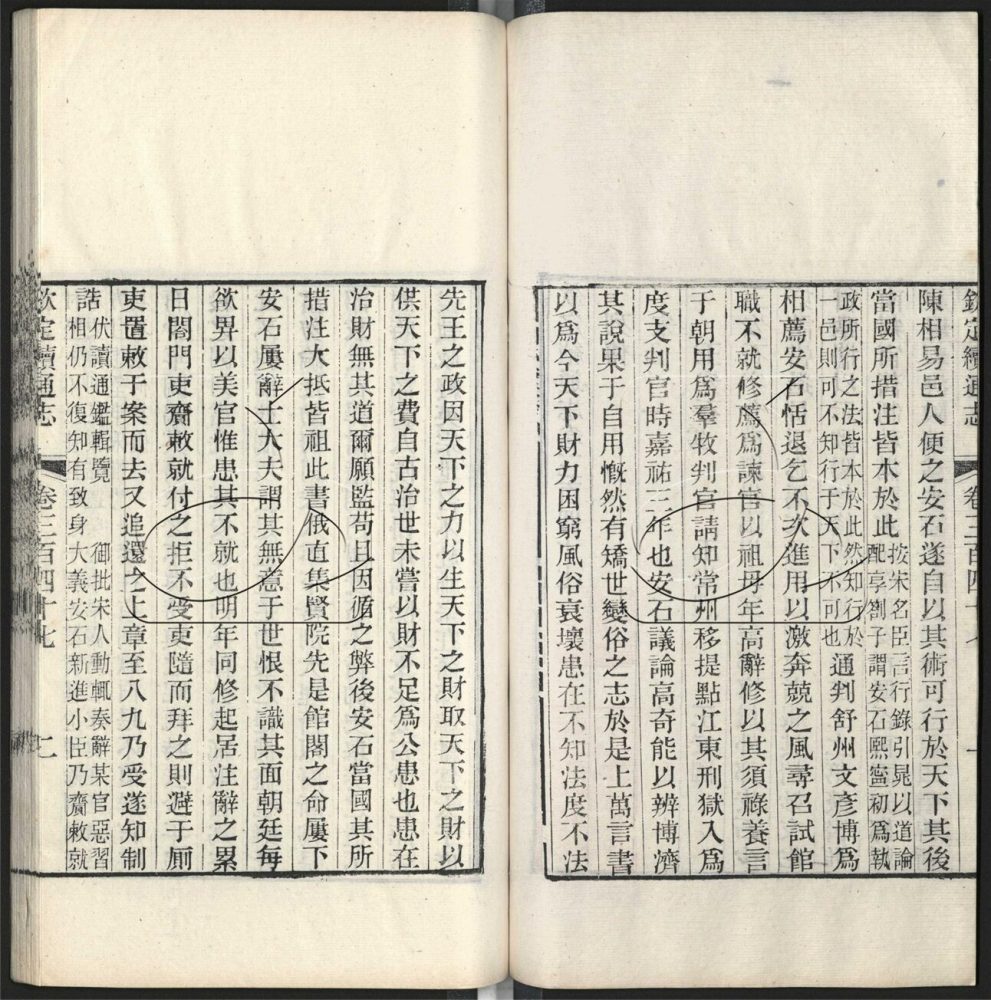 欽定續通志 卷三百四十七
陳相易邑人便之安石遂自以其術可行於天下其後
當國所措注皆本於此按宋名臣言行錄引晁以道論
配享劄子謂安石熙寧初爲執
政所行之法皆本於此然知行於
一邑則可不知行于天下不可也通判舒州文彥博爲
相薦安石恬退乞不次進用以激奔競之風尋召試館
職不就修薦爲諫官以祖母年高辭修以其須祿養言
于朝用爲羣牧判官請知常州移提點江東刑獄入爲
度支判官時嘉祐三年也安石議論高奇能以辨博濟
其說果于自用慨然有矯世變俗之志於是上萬言書
以爲今天下財力困窮風俗衰壞患在不知法度不法
先王之政因天下之力以生天下之財取天下之財以
供天下之費自古治世未嘗以財不足爲公患也患在
治財無其道爾願監苟且因循之弊後安石當國其所
措注大抵皆祖此書俄直集賢院先是館閣之命屢下
安石屢辭士大夫謂其無意于世恨不識其面朝廷每
欲畀以美官惟患其不就也明年同修起居注辭之累
日閤門吏齎敕就付之拒不受吏隨而拜之則避于厠
吏置敕于案而去又追還之上章至八九乃受遂知制
誥伏讀通鑑輯覽 御批宋人動輒奏辭某官惡習
相仍不復知有致身大義安石新進小臣乃齎敕就
欽定續通志 卷三百四十七